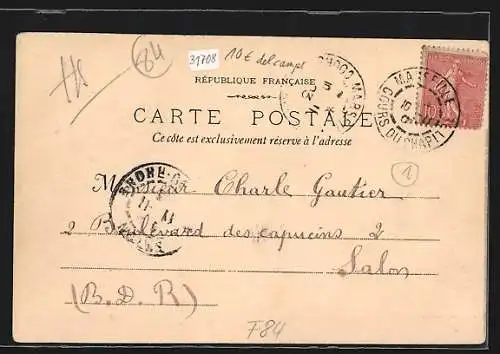 84
31708
10€ delcampe
RÉPUBLIQUE FRANÇAISE
CARTE POSTALE
Ce côté est exclusivement réservé à l'adresse
MARSEILLE
COURS DU CHAPITRE
10
1
Monsieur Charle Gautier
2 Boulevard des capucins 2
Salon
(B. D. R)
F84